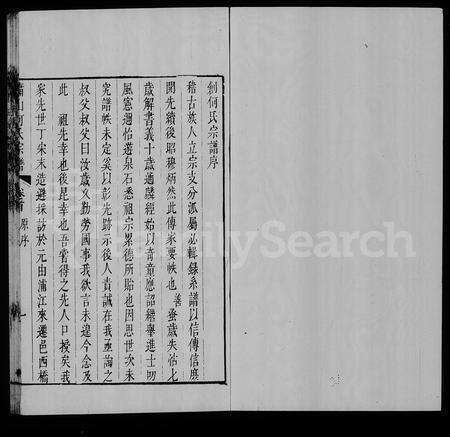 創何氏宗譜序
稽古族人立宗支分派屬必輯錄系譜以信傳信庶
開先續後昭穆炳然此傳家要帙也善蚤歲失怙七
歲解書義十歲通麟經始以奇童應詔繼舉進士叨
風憲邇怡遊泉石悉祖宗累德所貽也因思世次未
究譜帙未定奚以彰先跡示後人責誠在我亟諭之
叔父叔父曰汝歲久勤勞國事我欲言未遑今念及
此 祖先幸也後昆幸也吾嘗得之先人口授矣我
宋先世丁宋末造避採訪於元由浦江來遷邑西橋
蕭山何氏宗譜
卷首
原序
一
FamilySearch